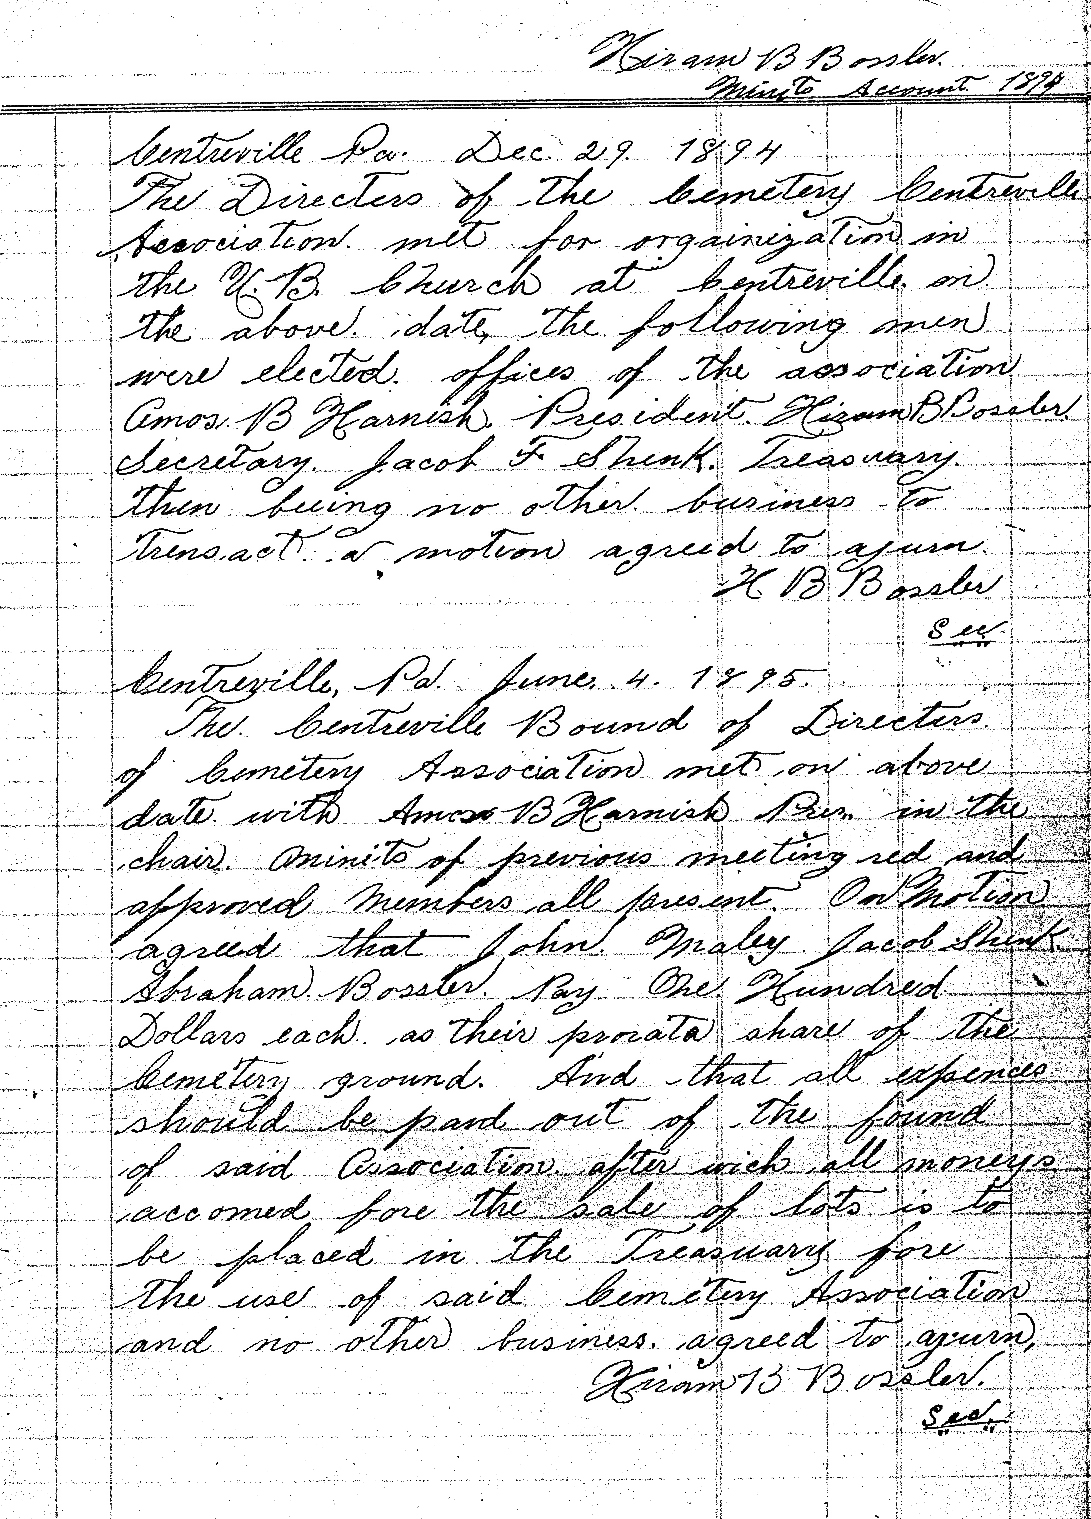 Hiram B Bossler.
Minits Account 1894
Centreville Pa. Dec. 29. 1894
The Directers of the Cemetery Centreville
Association. met for orgainization in
the U.B. Church at Centreville on
the above. date, the following men
were elected. offices of the association
Amos. B Harnish. President. Hiram B Bossler.
Secretary. Jacob F Shenk. Treasuary.
then being no other business to
Transact. a motion agreed to ajurn.
H B Bossler
Sec.
Centreville, Pa. June. 4. 1895.
The. Centreville Bound of Directers.
of Cemetery Association met on above
date with Amos B Harnish Pres. in the
chair. Minits of previous meeting red and
approved Members all present. On Motion
agreed that John. Maley Jacob Shenk
Abraham Bossler. Pay One Hundred
Dollars each as their prorata share of the
Cemetery ground. And that all expences
should be paid out of the found
of said Association after wich all moneys
accomed fore the sale of lots is to
be placed in the Treasuary fore
the use of said Cemetery Association
and no other business. agreed to ajurn,
Hiram B Bossler.
Sec.